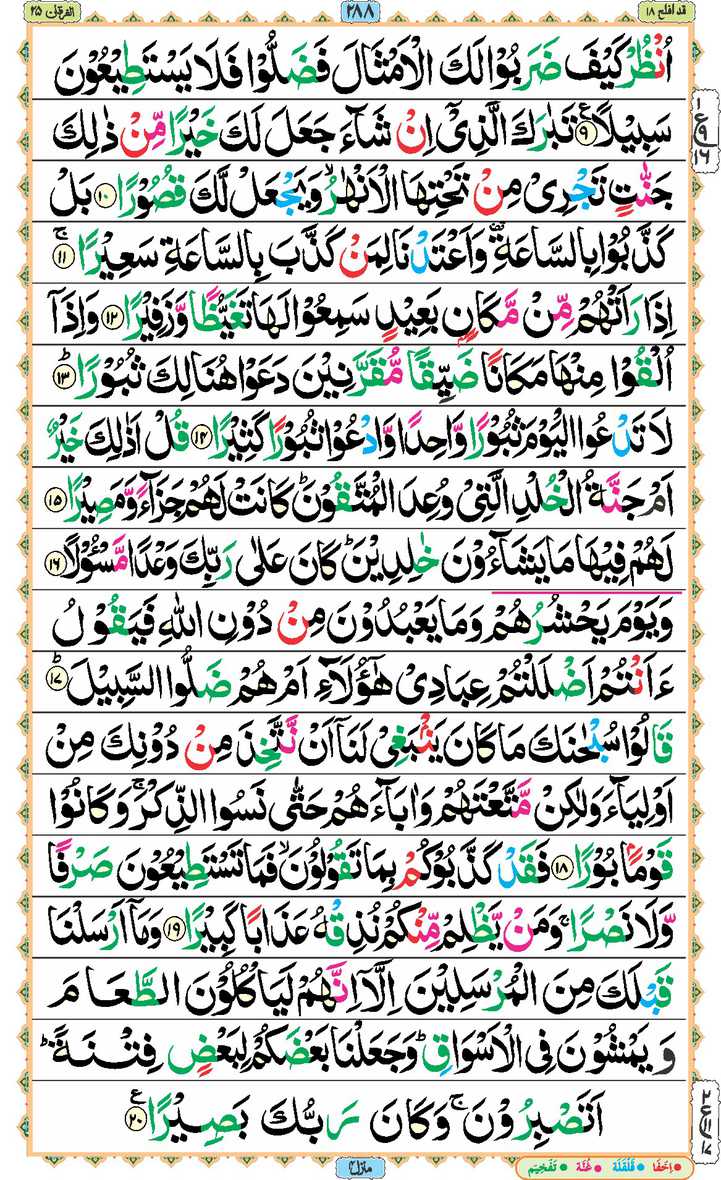 قد افلح ۱۸
۲۸۸
الفرقان ۲۵
اُنْظُرْ كَیْفَ ضَرَبُوْا لَكَ الْاَمْثَالَ فَضَلُّوْا فَلَا یَسْتَطِیْعُوْنَ
سَبِیْلًا ۹ تَبٰرَكَ الَّذِیْۤ اِنْ شَآءَ جَعَلَ لَكَ خَیْرًا مِّنْ ذٰلِكَ
جَنّٰتٍ تَجْرِیْ مِنْ تَحْتِهَا الْاَنْهٰرُۙ وَیَجْعَلْ لَّكَ قُصُوْرًا ۱۰ بَلْ
كَذَّبُوْا بِالسَّاعَةِ۫ وَاَعْتَدْنَا لِمَنْ كَذَّبَ بِالسَّاعَةِ سَعِیْرًاۚ ۱۱
اِذَا رَاَتْهُمْ مِّنْ مَّكَانٍۭ بَعِیْدٍ سَمِعُوْا لَهَا تَغَیُّظًا وَّزَفِیْرًا ۱۲ وَاِذَاۤ
اُلْقُوْا مِنْهَا مَكَانًا ضَیِّقًا مُّقَرَّنِیْنَ دَعَوْا هُنَالِكَ ثُبُوْرًاؕ ۱۳
لَا تَدْعُوا الْیَوْمَ ثُبُوْرًا وَّاحِدًا وَّادْعُوْا ثُبُوْرًا كَثِیْرًا ۱۴ قُلْ اَذٰلِكَ خَیْرٌ
اَمْ جَنَّةُ الْخُلْدِ الَّتِیْ وُعِدَ الْمُتَّقُوْنَؕ كَانَتْ لَهُمْ جَزَآءً وَّمَصِیْرًا ۱۵
لَهُمْ فِیْهَا مَا یَشَآءُوْنَ خٰلِدِیْنَؕ كَانَ عَلٰی رَبِّكَ وَعْدًا مَّسْـُٔوْلًا ۱۶
وَیَوْمَ یَحْشُرُهُمْ وَمَا یَعْبُدُوْنَ مِنْ دُوْنِ اللّٰهِ فَیَقُوْلُ
ءَاَنْتُمْ اَضْلَلْتُمْ عِبَادِیْ هٰۤؤُلَآءِ اَمْ هُمْ ضَلُّوا السَّبِیْلَؕ ۱۷
قَالُوْا سُبْحٰنَكَ مَا كَانَ یَنْۢبَغِیْ لَنَاۤ اَنْ نَّتَّخِذَ مِنْ دُوْنِكَ مِنْ
اَوْلِیَآءَ وَلٰكِنْ مَّتَّعْتَهُمْ وَاٰبَآءَهُمْ حَتّٰی نَسُوا الذِّكْرَۚ وَكَانُوْا
قَوْمًۢا بُوْرًا ۱۸ فَقَدْ كَذَّبُوْكُمْ بِمَا تَقُوْلُوْنَۙ فَمَا تَسْتَطِیْعُوْنَ صَرْفًا
وَّلَا نَصْرًاۚ وَمَنْ یَّظْلِمْ مِّنْكُمْ نُذِقْهُ عَذَابًا كَبِیْرًا ۱۹ وَمَاۤ اَرْسَلْنَا
قَبْلَكَ مِنَ الْمُرْسَلِیْنَ اِلَّاۤ اِنَّهُمْ لَیَاْكُلُوْنَ الطَّعَامَ
وَیَمْشُوْنَ فِی الْاَسْوَاقِؕ وَجَعَلْنَا بَعْضَكُمْ لِبَعْضٍ فِتْنَةًؕ
اَتَصْبِرُوْنَۚ وَكَانَ رَبُّكَ بَصِیْرًا ۲۰
منزل ۴
اِخْفَا • قَلْقَلَة • غُنَّة • تَفْخِيْم •